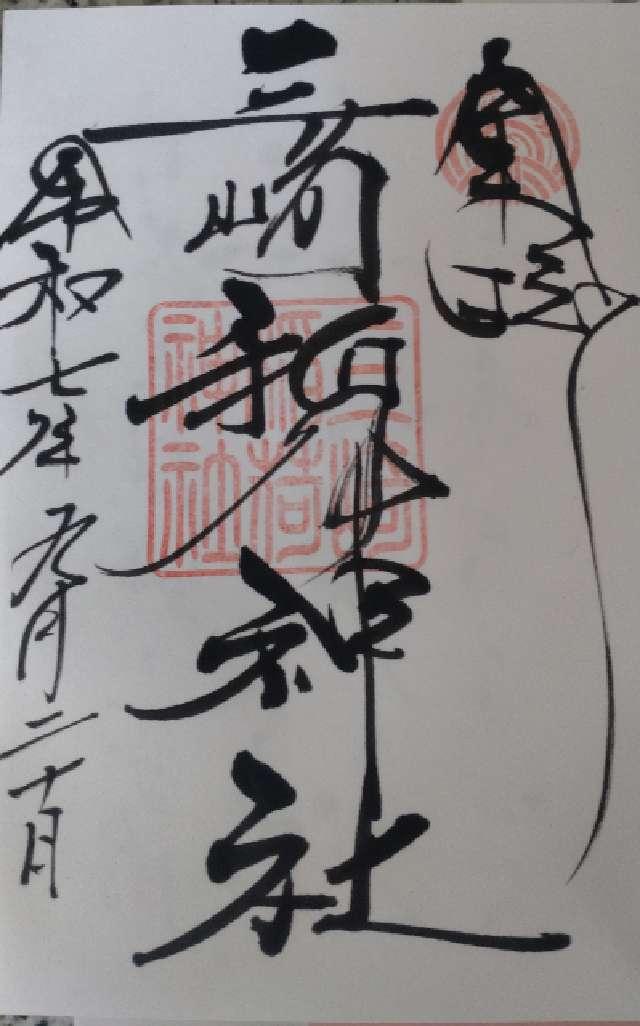 三崎稲荷神社
三崎
稲荷
神社
令和七年九月二十日